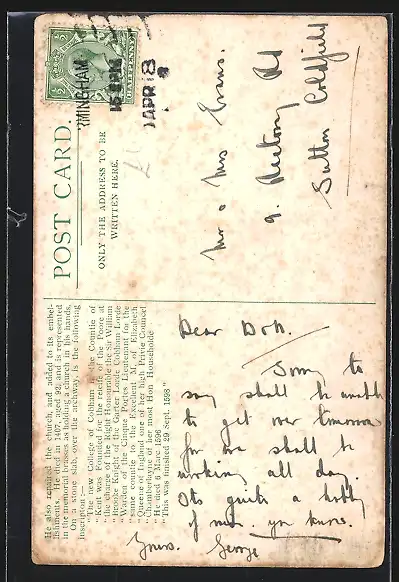 ½ ½
HALFPENNY
BIRMINGHAM
APR 8
POST CARD.
ONLY THE ADDRESS TO BE
WRITTEN HERE.
Mr & Mrs Evans.
9. Rectory Rd
Sutton Coldfield
He also repaired the church, and added to its embel-
lishments. He died in 1407, aged 92, and is represented
in the memorial brasses as holding a church in his hands.
On a stone slab over the archway, is the following
inscription:—
"The new College of Cobham in the Countie of
"Kent was Founded for the relefe of the Poore at
"the charge of the Right Honourable the Sir William
"Brooke Knight of the Garter Lorde Cobham Lorde
"Warden of the Cinque Portes Lieutenant for the
"same countie to the Excellent M, of Elizabeth
"Queene of England one of her high Privie Counsel
"Chamberlayne of her most Hon Householde
"He died 6 Marc 1596
"This was finished 29 Sept. 1598"
Dear Both.
Sorry to
say shall be unable
to get over tomorrow
for we shall be
working all day.
Its quite a hobby
of mine. you know.
Yours. George